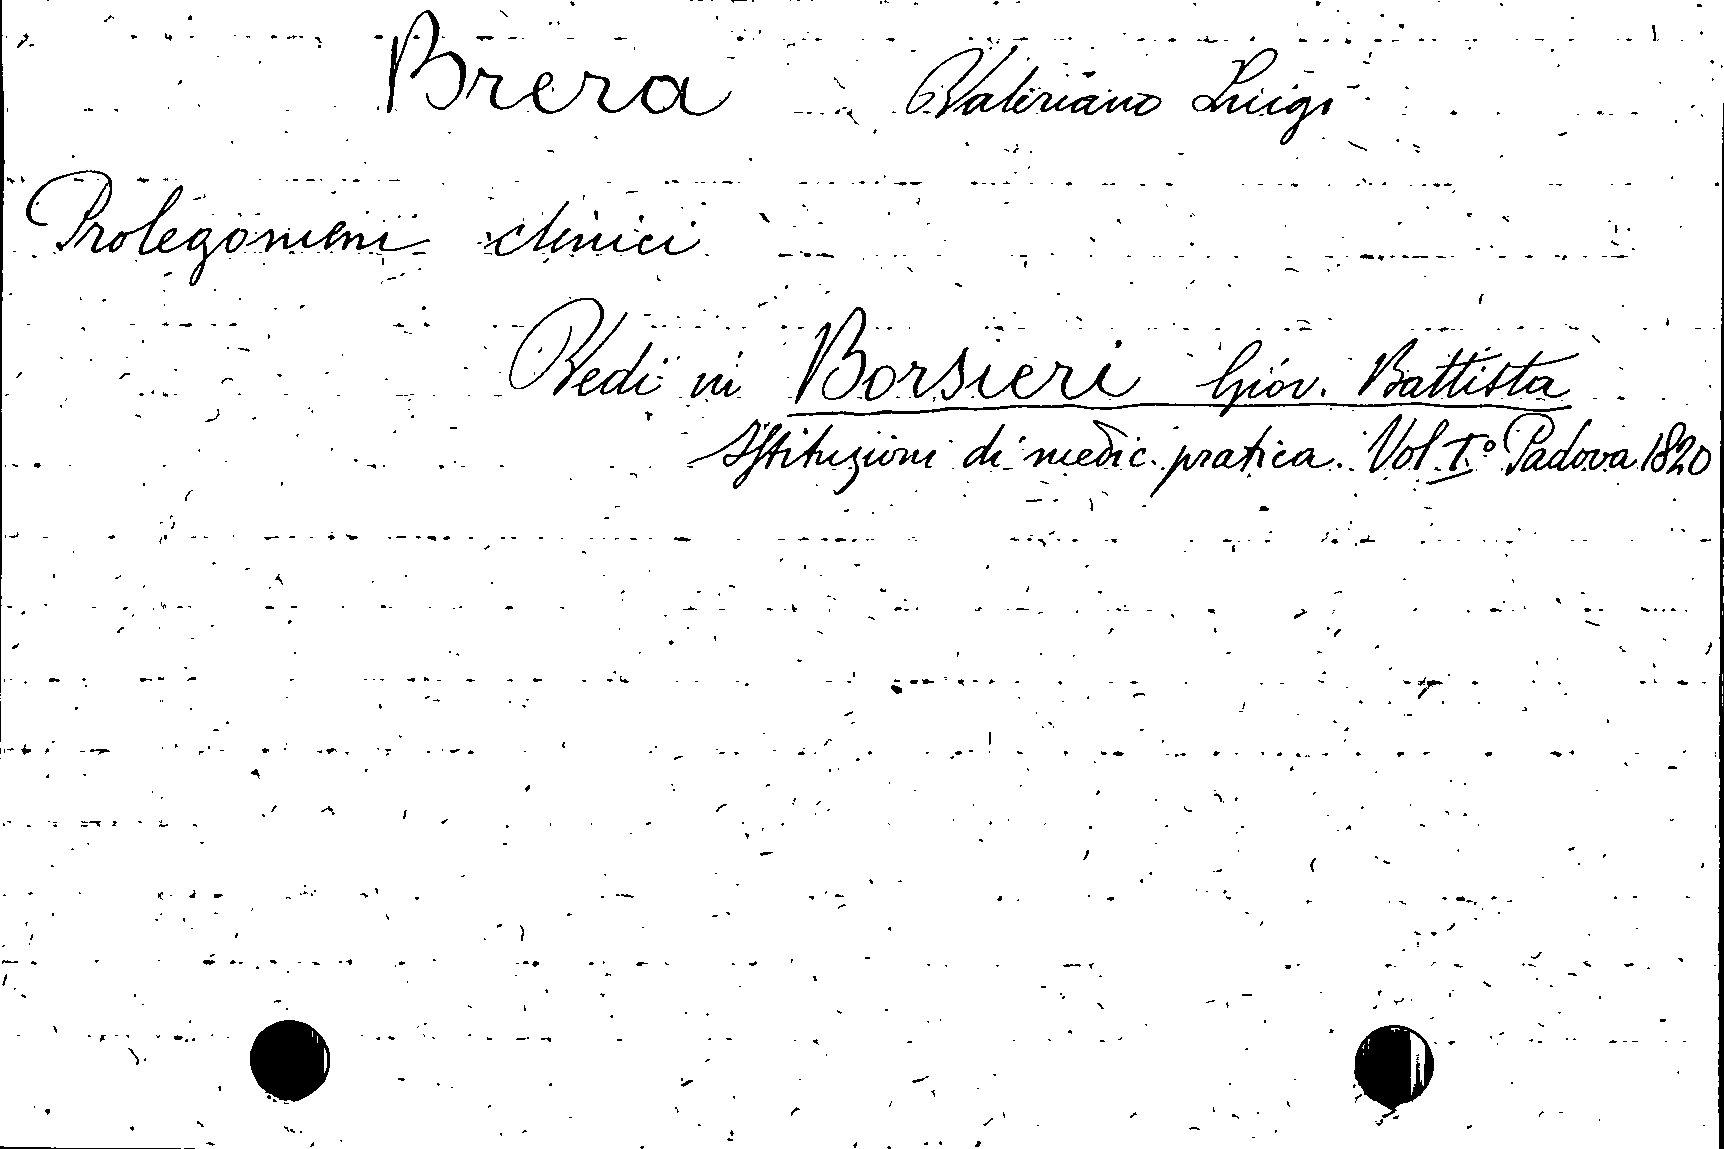 Brera Valeriano Luigi
Prolegomeni clinici
Vedi in Borsieri Giov. Battista
Istituzioni di medic. pratica. Vol. I.° Padova 1820